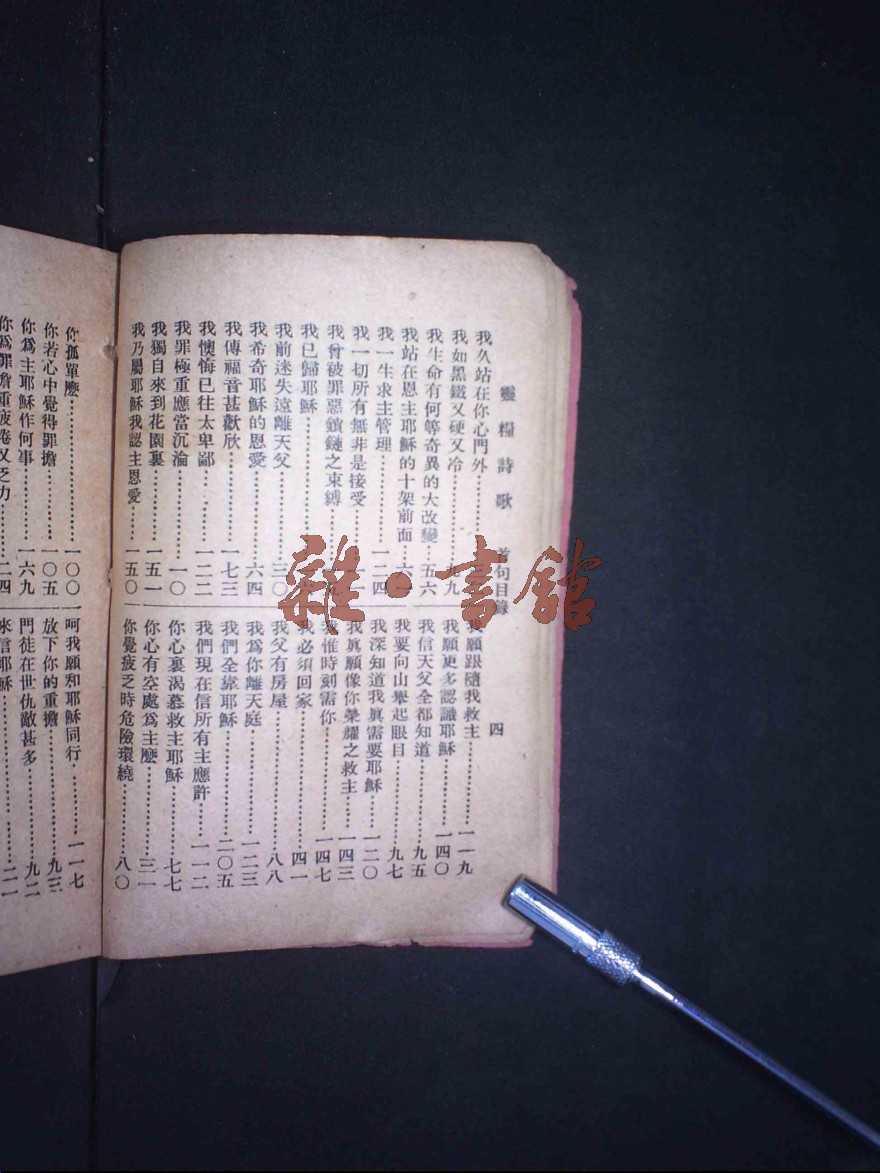 靈糧詩歌 首句目錄 四
我久站在你心門外
我如黑鐵又硬又冷………九九
我生命有何等奇異的大改變…五六
我站在恩主耶穌的十架前面…六
我一生求主管理…………一二四
我一切所有無非是接受
我曾被罪惡鎖鏈之束縛
我已歸耶穌
我前迷失遠離天父…………三〇
我希奇耶穌的恩愛…………六四
我傳福音甚歡欣…………一七三
我懊悔已往太卑鄙…………一二二
我罪極重應當沉淪…………一〇
我獨自來到花園裏…………一五一
我乃屬耶穌我認主恩愛……一五〇
我願跟隨我救主…………一一九
我願更多認識耶穌…………一四〇
我信天父全都知道…………九五
我要向山舉起眼目…………九七
我深知道我眞需要耶穌……一二〇
我眞願像你榮耀之救主……一四三
我惟時刻需你…………一四七
我必須回家…………四一
我父有房屋…………八八
我爲你離天庭…………一二三
我們全靠耶穌…………二〇五
我們現在信所有主應許……一一二
你心裏渴慕救主耶穌………七七
你心有空處爲主麽…………三一
你覺疲乏時危險環繞………八〇
你孤單麽…………一〇〇
你若心中覺得罪擔…………一〇五
你爲主耶穌作何事…………一六九
你爲罪擔重疲倦又乏力……二四
呵我願和耶穌同行…………一一七
放下你的重擔…………九三
門徒在世仇敵甚多…………九二
來信耶穌…………二一
雜·書館